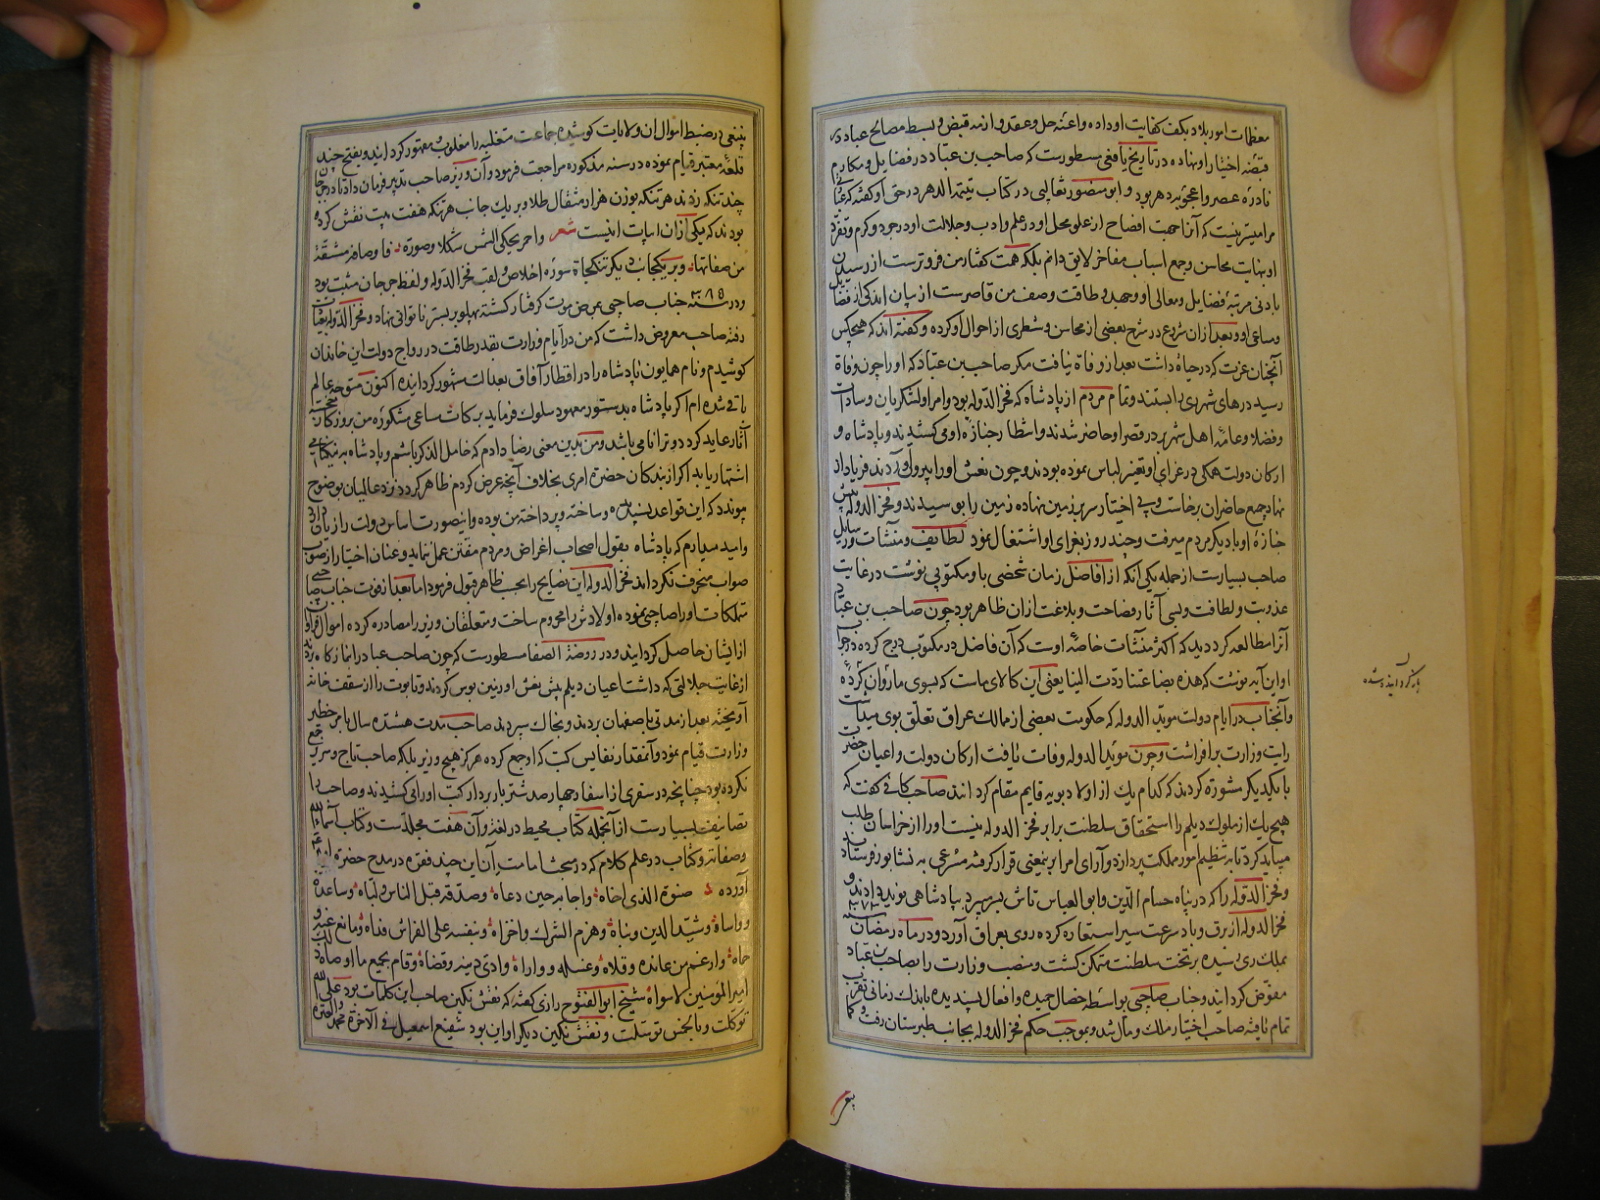 معظمات امور بلاد بکف کفایت او داده و اعنّه حل و عقد و ازمه قبض و بسط مصالح عباد در
قبضه اختیار او نهاده در تاریخ یافعی مسطورست که صاحب بن عباد در فضایل و مکارم
نادره عصر و اعجوبه دهر بود و ابو منصور ثعالبی در کتاب یتیمة الدهر در حق او گفته که
مرا میسر نیست که آنرا جهت افصاح از علو محل او در علم و ادب و جلالت او در جود و کرم و تفرد
او بغایات محاسن و جمع اسباب مفاخر لایق دانم بلکه همت گفتار من فروترست از رسیدن
بادنی مرتبه فضایل و معالی او و جهد و طاقت وصف من قاصرست از بیان اندکی از فضایل
و مساعی او و بعد ازان شروع در شرح بعضی از محاسن و شطری از احوال او کرده و گفته اند که هیچکس
آنچنان عزت که در حیاة داشت بعد از وفاة نیافت مگر صاحب بن عباد که او را چون وفاة
رسید درهای شهر ری را بستند و تمام مردم از پادشاه که فخر الدوله بود و امرا و لشکریان و سادات
و فضلا و عامه اهل شهر بر در قصر او حاضر شدند و انتظار جنازه او می کشیدند و پادشاه و
ارکان دولت همگی در عزای او تغییر لباس نموده بودند و چون نعش او را بیرون آوردند فریاد از
نهاد جمع حاضران برخاست و بی اختیار سر بر زمین نهاده زمین را بوسیدند و فخر الدوله پیش
جنازه او با دیگر مردم میرفت و چند روز بعزای او اشتغال نمود لطایف و منشآت و رسایل
صاحب بسیارست از جمله یکی آنکه از افاضل زمان شخصی باو مکتوبی نوشت در غایت
عذوبت و لطافت و بسی آثار فصاحت و بلاغت ازان ظاهر بود چون صاحب بن عباد
آنرا مطالعه کرد دید که اکثر منشآت خاصه اوست که آن فاضل در مکتوب درج کرده در جواب
او این آیه نوشت که هذه بضاعتنا ردّت الینا یعنی این کالای ماست که بسوی ما روان کرده
و آنجناب در ایام دولت موید الدوله که حکومت بعضی از ممالک عراق تعلق بوی میداشت
رایت وزارت برافراشت و چون موید الدوله وفات یافت ارکان دولت و اعیان حضرت
با یکدیگر مشورة کردند که کدام یک از اولاد بویه قایم مقام گردانند صاحب کافی گفت که
هیچ یک از ملوک دیلم را استحقاق سلطنت برابر فخر الدوله نیست او را از خراسان طلب
میباید کرد تا به تنظیم امور مملکت پردازد و آرای امرا برینمعنی قرار گرفته مسرعی به نشابور فرستادند
و فخر الدوله را که در پناه حسام الدین و ابو العباس تاش بسر میبرد بپادشاهی نوید دادند و
فخر الدوله از برق و باد سرعت سیر استعاره کرده روی بعراق آورد و در ماه رمضان سنه ۳۷۳
بملک ری رسیده بر تخت سلطنت متمکن گشت و منصب وزارت را بصاحب بن عباد
مفوض گردانید و جناب صاحبی بواسطه خصال حمیده و افعال پسندیده باندک زمانی تقرب
تمام یافته صاحب اختیار ملک و مال شد و بموجب حکم فخر الدوله بجانب طبرستان رفت و کما
باز گردانیده شده
ینبغی در ضبط اموال ان ولایات کوشیده جماعت متغلبه را مغلوب و مقهور گردانید و بفتح چند
قلعه معتبر قیام نموده در سنه مذکوره مراجعت فرمود و آن وزیر صاحب تدبیر فرمان داد تا در جرجان
چند تنکه زدند هر تنکه بوزن هزار مثقال طلا و بر یک جانب هر تنکه هفت بیت نقش کرده
بودند که یکی ازان ابیات اینست شعر و احمر یحکی الشمس شکلا و صورة فاوصافه مشتقة
من صفاتها و بر یکجانب دیگر تنکجاة سوره اخلاص و لقب فخر الدوله و لفظ جرجان مثبت بود
و در سنه ۳۸۵ جناب صاحبی بمرض موت گرفتار گشته پهلو بر بستر ناتوانی نهاد و فخر الدوله بعیادت
رفته صاحب معروض داشت که من در ایام وزارت بقدر طاقت در رواج دولت این خاندان
کوشیدم و نام همایون پادشاه را در اقطار آفاق بعدالت مشهور گردانیده اکنون متوجه عالم
باقی شده ام اگر پادشاه بدستور معهود سلوک فرماید برکات مساعی مشکوره من بروزگار خجسته
آثار عاید گردد و ترا نامی باشد و من بدین معنی رضا دادم که خامل الذکر باشم و پادشاه به نیکنامی
اشتهار یابد اگر از بندگان حضرة امری بخلاف آنچه عرض کردم ظاهر گردد نزد عالمیان بوضوح
پیوندد که این قواعد پسندیده ساخته و پرداخته من بوده و اینصورت اساس دولت را زیان دارد
و امید میدارم که پادشاه بقول اصحاب اغراض و مردم مفتن عمل ننماید و عنان اختیار از صوب
صواب منحرف نگرداند فخر الدوله این نصایح را بحسب ظاهر قبول فرمود اما بعد از فوت جناب صاحبی
تملکات او را صاحبی نموده اولادش را محروم ساخت و متعلقان وزیر را مصادره کرده اموال فراوان
از ایشان حاصل گردانید و در روضة الصفا مسطورست که چون صاحب عباد را نمازگاه بردند
از غایت جلالتی که داشت اعیان دیلم پیش نعش او زمین بوس کردند و تابوت را از سقف خانه
آویخته بعد از مدتی باصفهان بردند و بخاک سپردند صاحب مدت هشده سال بامر خطیر
وزارت قیام نمود و آنمقدار نفایس کتب که او جمع کرده هرگز هیچ وزیر بلکه صاحب تاج و سریر جمع
نکرده بود چنانچه در سفری از اسفار چهار صد شتر باربردار کتب او را می کشیدند و صاحب را
تصانیف بسیارست از آنجمله کتاب محیط در لغة و آن هفت مجلدست و کتاب اسماء الله
و صفاته و کتاب در علم کلام که در مبحث امامت آن این چند فقره در مدح حضرة
آورده صنوه الذی اخاه و اجابه حین دعاه و صدّقه قبل الناس و لبّاه و ساعده
و واساه و شیّد الدین و بناه و هزم الشرک و اخزاه و بنفسه علی الفراش فداه و مانع عنه و
حماه و ارغم من عانده و قلاه و غسله و واراه و ادّی دینه و قضاه و قام بجمیع ما اوصاه ذلک
امیر المومنین لا سواه شیخ ابو الفتوح رازی گفته که نقش نگین صاحب این کلمات بود علی الله
توکلت و بالخمس توسلت و نقش نگین دیگر او این بود شفیع اسمعیل فی الآخرة محمد و العترة